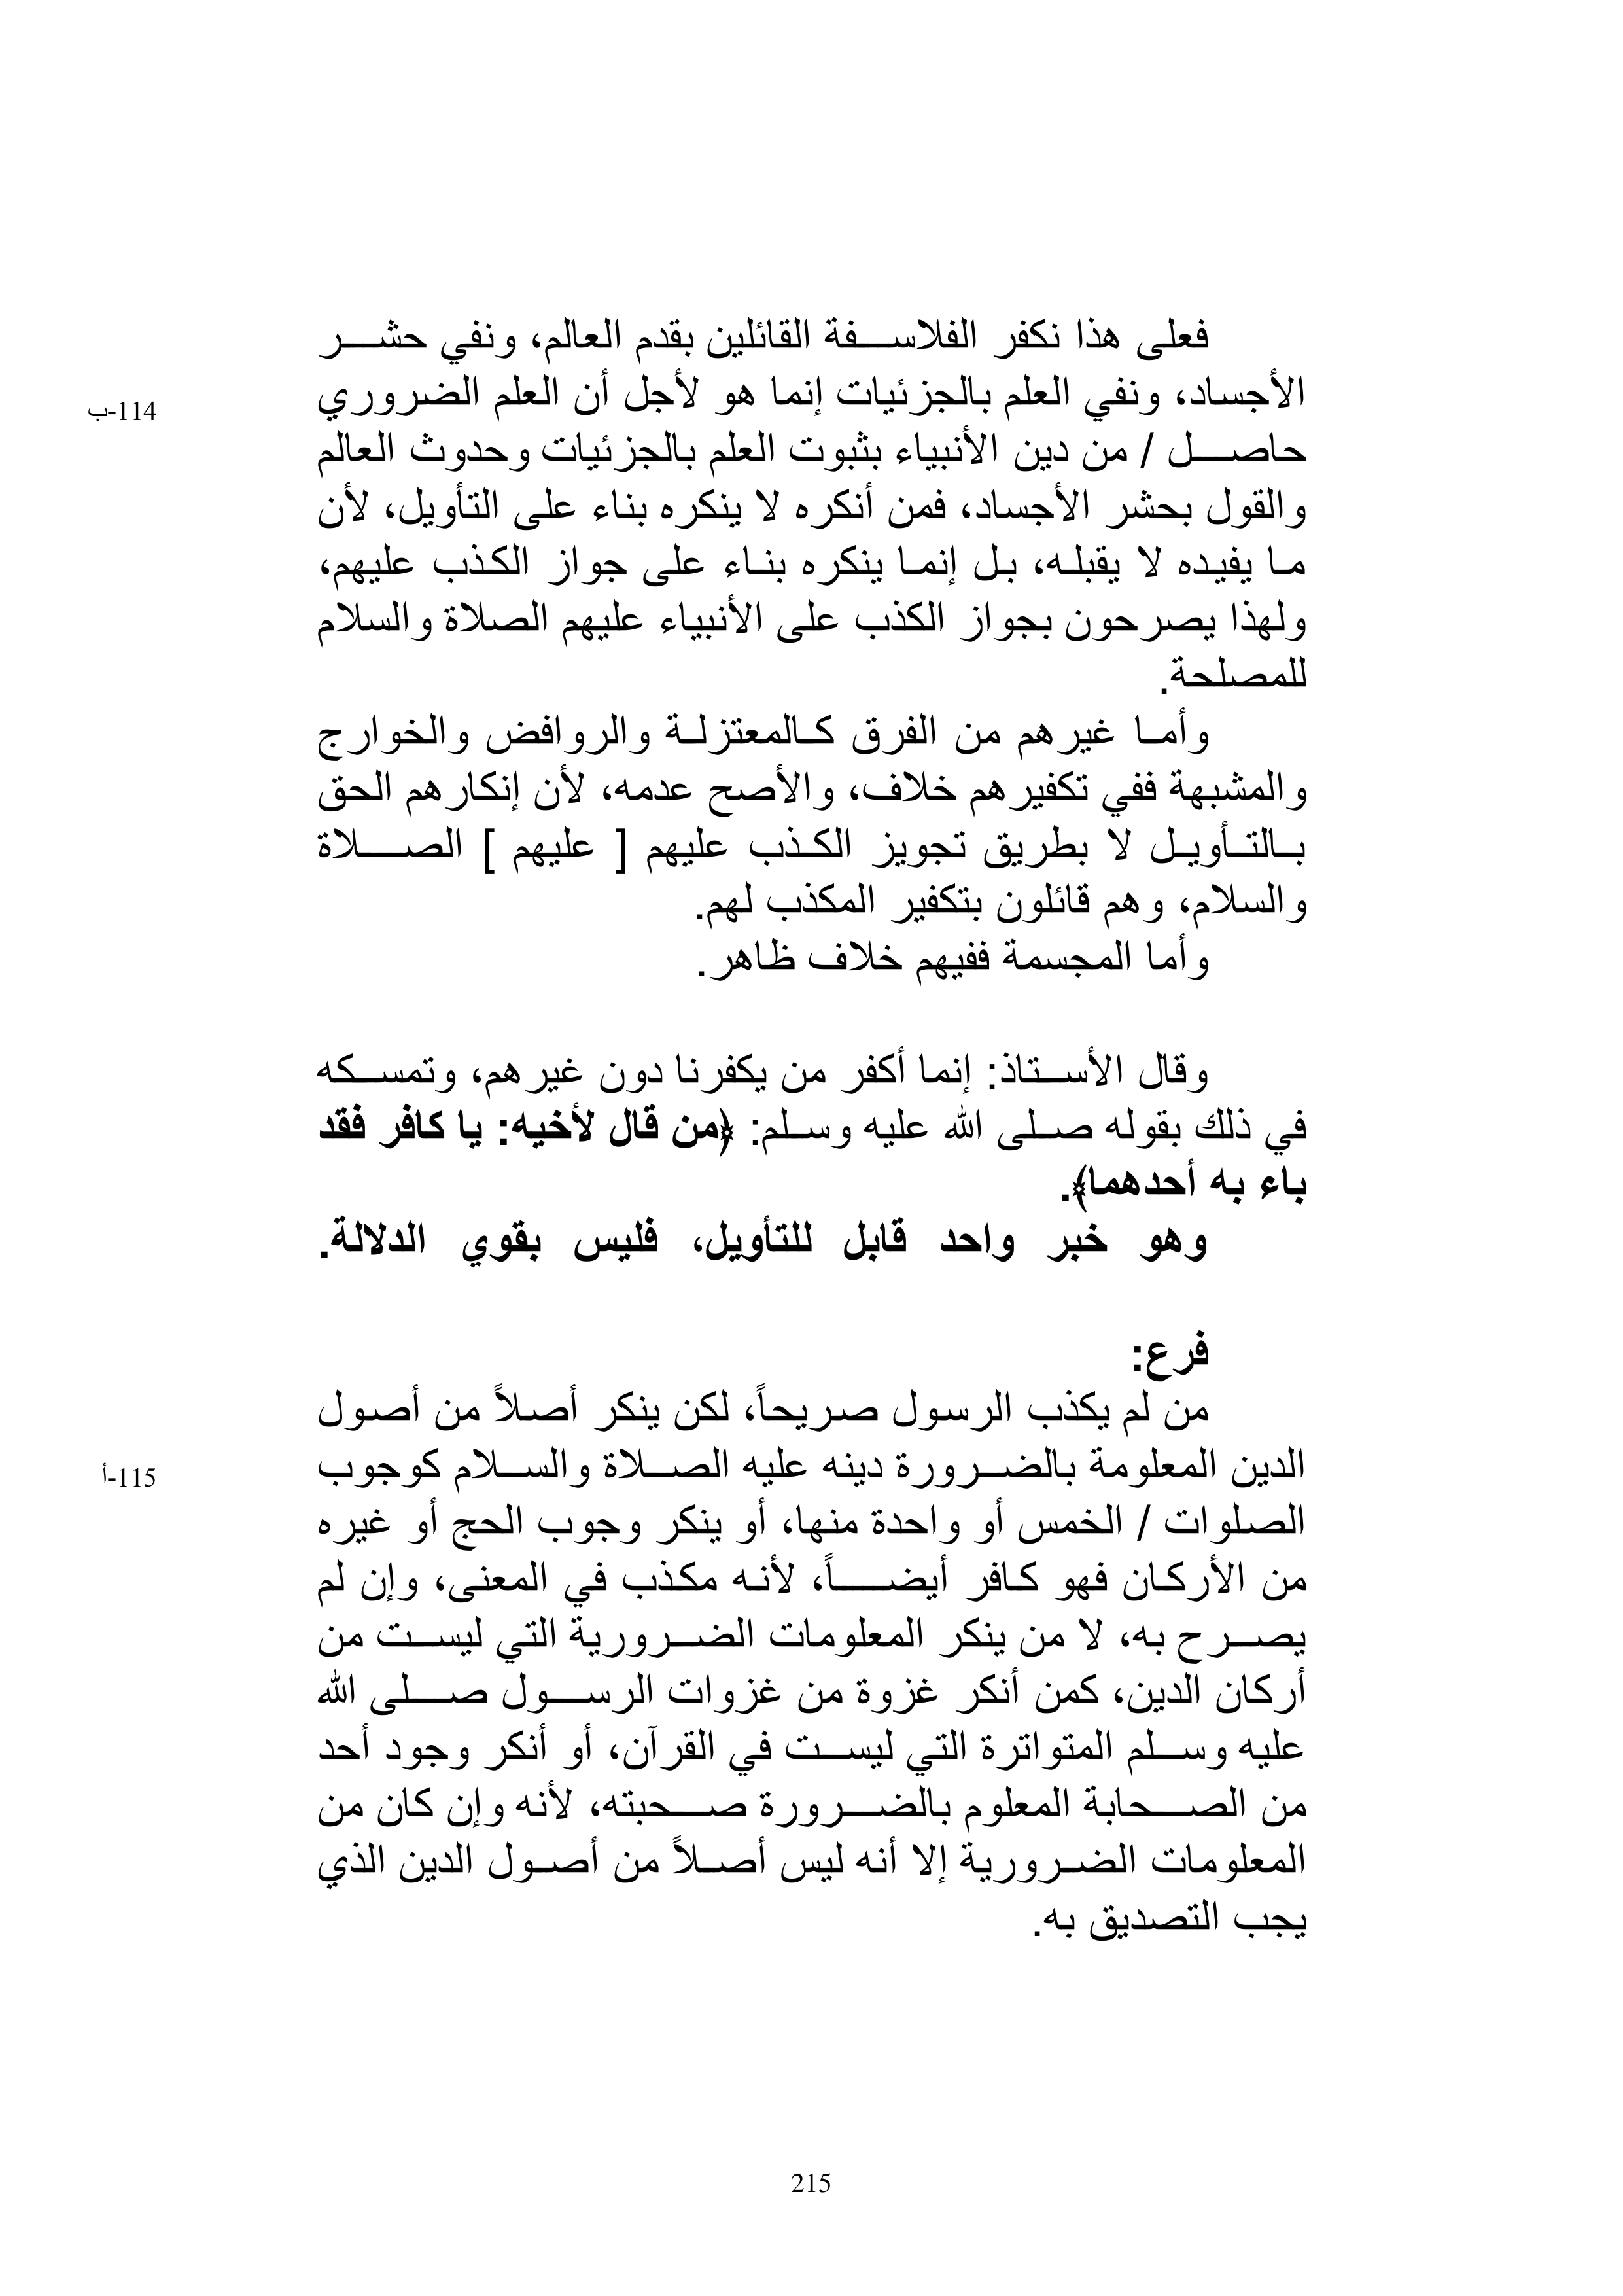 فعلى هذا نكفر الفلاسفة القائلين بقدم العالم، ونفي حشر
الأجساد، ونفي العلم بالجزئيات إنما هو لأجل أن العلم الضروري
114-ب
حاصل / من دين الأنبياء بثبوت العلم بالجزئيات وحدوث العالم
والقول بحشر الأجساد، فمن أنكره لا ينكره بناء على التأويل، لأن
ما يفيده لا يقبله، بل إنما ينكره بناء على جواز الكذب عليهم،
ولهذا يصرحون بجواز الكذب على الأنبياء عليهم الصلاة والسلام
للمصلحة.
وأما غيرهم من الفرق كالمعتزلة والروافض والخوارج
والمشبهة ففي تكفيرهم خلاف، والأصح عدمه، لأن إنكارهم الحق
بالتأويل لا بطريق تجويز الكذب عليهم [ عليهم ] الصلاة
والسلام، وهم قائلون بتكفير المكذب لهم.
وأما المجسمة ففيهم خلاف ظاهر.
وقال الأستاذ: إنما أكفر من يكفرنا دون غيرهم، وتمسكه
في ذلك بقوله صلى الله عليه وسلم: ﴿من قال لأخيه: يا كافر فقد
باء به أحدهما﴾.
وهو خبر واحد قابل للتأويل، فليس بقوي الدلالة.
فرع:
من لم يكذب الرسول صريحاً، لكن ينكر أصلاً من أصول
الدين المعلومة بالضرورة دينه عليه الصلاة والسلام كوجوب
115-أ
الصلوات / الخمس أو واحدة منها، أو ينكر وجوب الحج أو غيره
من الأركان فهو كافر أيضاً، لأنه مكذب في المعنى، وإن لم
يصرح به، لا من ينكر المعلومات الضرورية التي ليست من
أركان الدين، كمن أنكر غزوة من غزوات الرسول صلى الله
عليه وسلم المتواترة التي ليست في القرآن، أو أنكر وجود أحد
من الصحابة المعلوم بالضرورة صحبته، لأنه وإن كان من
المعلومات الضرورية إلا أنه ليس أصلاً من أصول الدين الذي
يجب التصديق به.
215